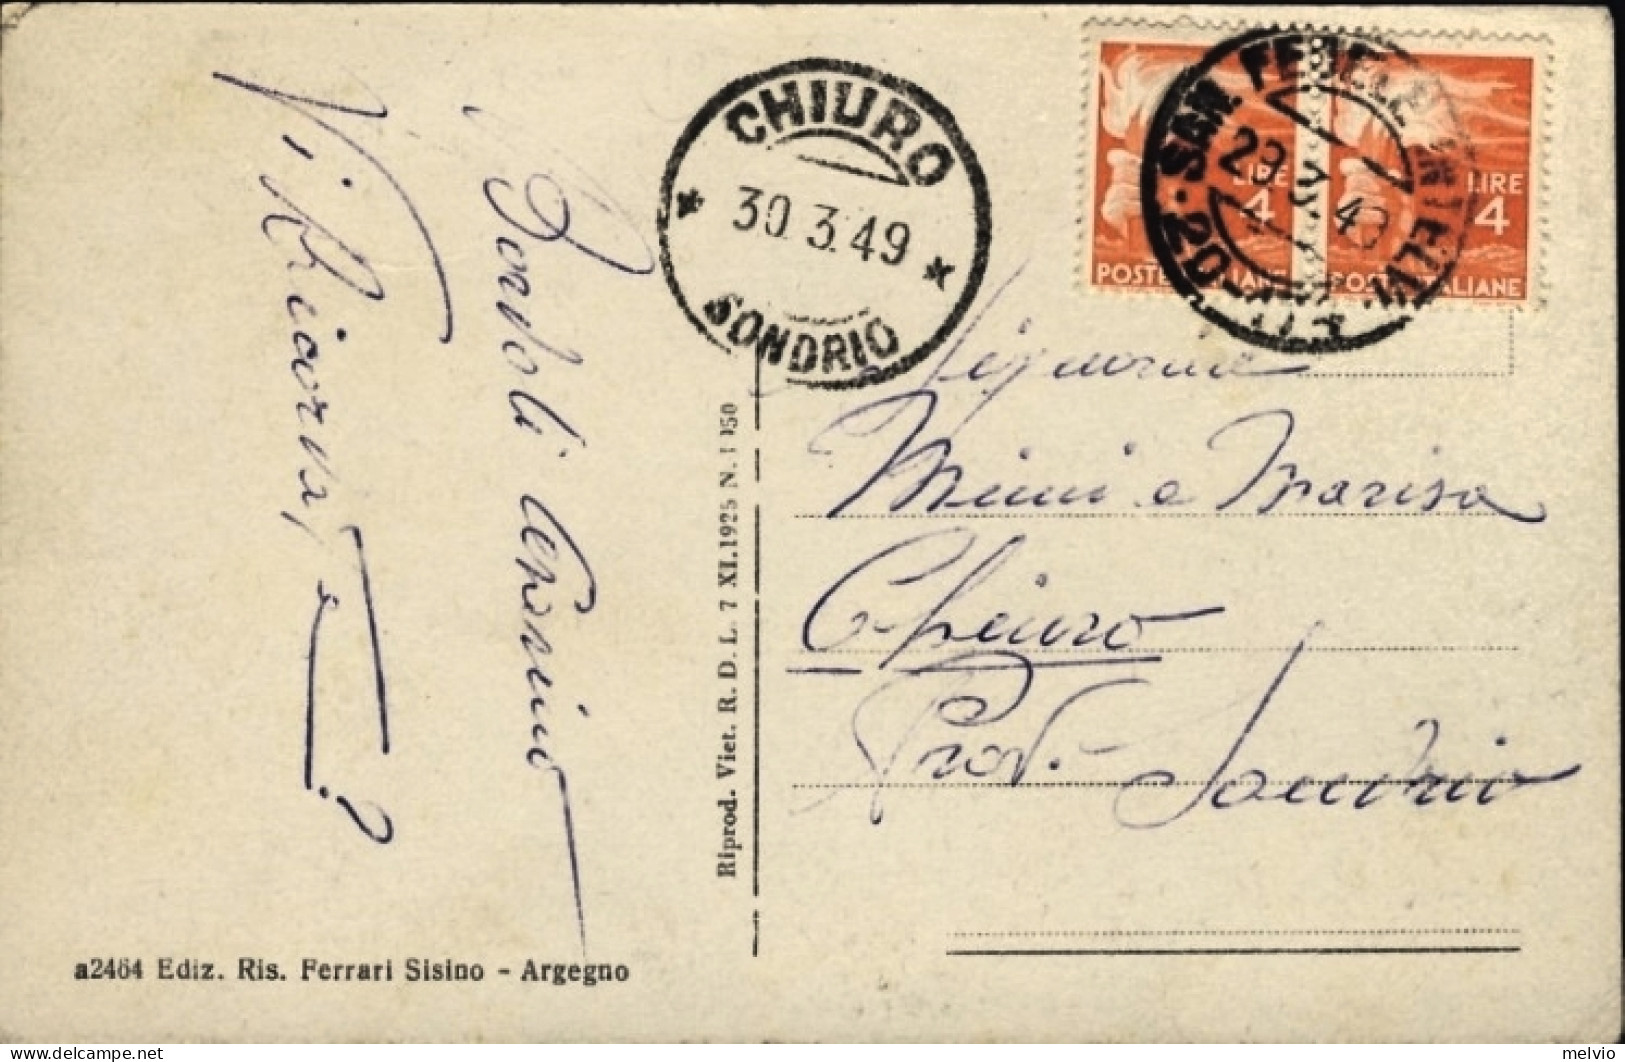 CHIURO
30.3.49
SONDRIO
SAN FEDELE INTELVI
29.3.49
LIRE
4
POSTE ITALIANE
LIRE
4
POSTE ITALIANE
Signorine
Mimi e Marisa
Chiuro
Prov. Sondrio
Riprod. Viet. R. D. L. 7 XI.1925 N. 1950
a2464 Ediz. Ris. Ferrari Sisino - Argegno
melvio